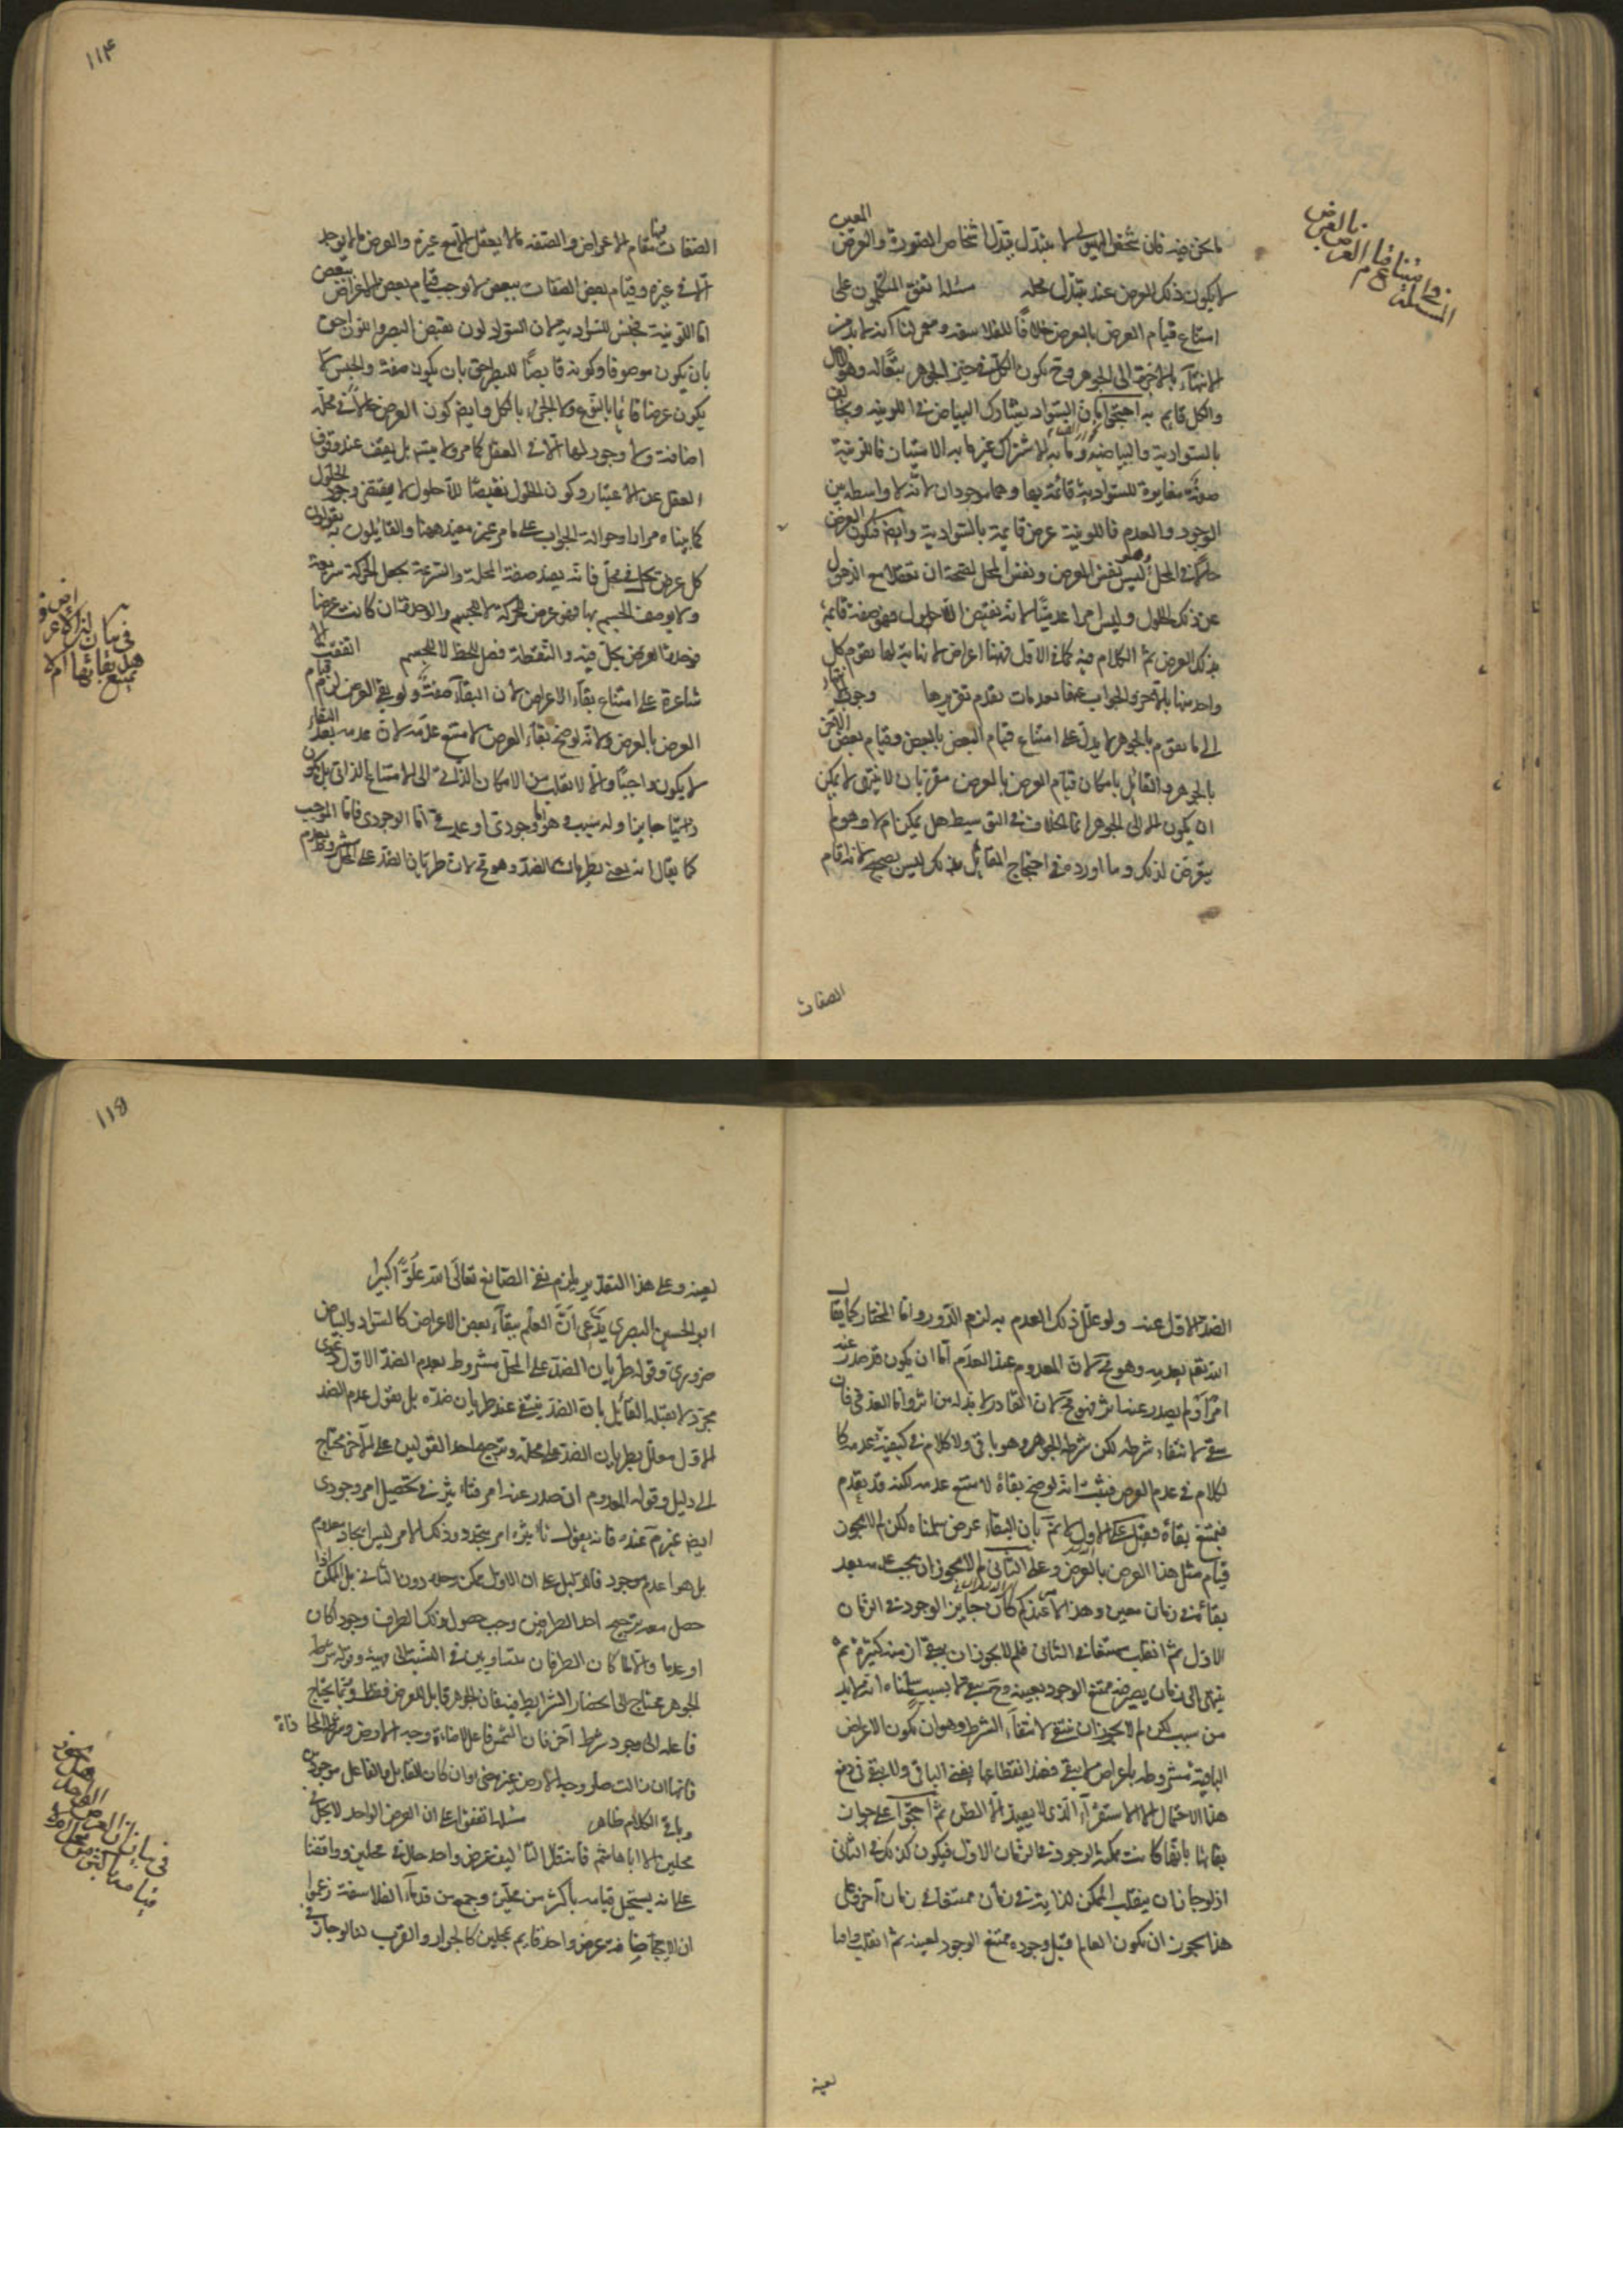 ما نحن فيه فان تشخص الهيولى لا يتبدل بتبدل اشخاص الصورة والعرض المعين
لا يكون ذلك العرض عند تبدل محله مسئلة اتفق المتكلمون على
امتناع قيام العرض بالعرض خلافًا للفلاسفة ومعمر لنا انه لا بد من
الانتهاء بالاخرة الى الجوهر وح يكون الكل في حيز الجوهر تبعًا له وهو الاصل
والكل قائم به احتجوا بان السواد يشارك البياض في اللونية ويخالفه
بالسوادية والبياضية وما به الاشتراك غير ما به الامتياز فاللونية
صفة مغايرة للسوادية قائمة بها وهما موجودان لانه لا واسطة بين
الوجود والعدم فاللونية عرض قايمة بالسوادية وايضا فكون العرض
حالا في المحل ليس هو نفس العرض ونفس المحل لصحة ان تعقلا مع الذهول
عن ذلك الحلول وليس امرا عدميًا لانه نقيض اللاحلول فهو صفة قائمة
بذلك العرض ثم الكلام فيه كما في الاول فههنا اعراض لا نهاية لها يقوم كل
واحد منها بالاخر والجواب عنها بعد مقدمات تقدم تقريرها وجوب انتهاء
الى ما يقوم بالجوهر لا يدل على امتناع قيام البعض بالبعض وقيام بعض الاخر
بالجوهر والقائل بامكان قيام العرض بالعرض مقر بان الاخير لا يمكن
ان يكون الا الى الجوهر انما الخلاف في التوسيط هل يمكن ام لا وهو لم
يتعرض لذلك وما اورده في احتجاج القائل بذلك ليس بصحيح لانه اقام
الصفات
في امتناع قيام العرض بالعرض
١١٤
الصفات مقام الاعراض والصفة ما لا يعقل الا مع غيره والعرض ما لا يوجد
الا في غيره وقيام بعض الصفات ببعض لا يوجب قيام بعض الاعراض ببعض
اما اللونية فجنس للسوادية لان السواد لون يقبض البصر واللون احق
بان يكون موصوفا وكونه قابضًا للبصر احق بان يكون صفة والجنس لا
يكون عرضا قائمًا بالنوع ولا الجزء بالكل وايضا كون العرض حالا في محله
اضافة ولا وجود لها الا في العقل كما مر ولا يتسلسل بل يقف عند وقوف
العقل عن الاعتبار وكون الحلول نقيضًا للاحلول لا يقتضى وجود الحلول
كما بيناه مرارا وحوالة الجواب على ما مر غير مفيد ههنا والقائلون به يقولون
كل عرض يحل في محل فانه يفيد صفة لمحله والسرعة تجعل الحركة سريعة
ولا يوصف الجسم بها فهو عرض للحركة لا للجسم والوحدة ان كانت عرضا
فوحدة العرض يحل فيه والنقطة فصل للخط لا للجسم اتفقت الا
شاعرة على امتناع بقاء الاعراض لان البقاء صفة ولو بقى العرض لزم قيام
العرض بالعرض ولانه لو صح بقاء العرض لامتنع عدمه لان عدمه بعد البقاء
لا يكون واجبًا والا لانقلب من الامكان الذاتي الى الامتناع الذاتي بل يكون
جايزا وله سبب فهو اما وجودى او عدمى اما الوجودى فاما الموجب
كما يقال انه يفنى بطريان الضد وهو مح لان طريان الضد على المحل مشروط بعدم
في بيان ان الاعراض هل يمتنع بقائها ام لا
الضد الاول عنه ولو علل ذلك العدم به لزم الدور واما المختار كما يقال
الله تعم يعدمه وهو مح لان المعدم عند العدم اما ان يكون قد صدر عنه
امر او لم يصدر عنه اثر فهو مح لان القادر لا بد له من اثر واما العدمى فان
ينتفى لانتفاء شرطه لكن شرطه الجوهر وهو باق والكلام في كيفية عدمه كا
لكلام في عدم العرض فثبت انه لو صح بقاؤه لامتنع عدمه لكنه قد يعدم
فيمتنع بقاؤه فقيل على الاول لا نم بان البقاء عرض سلمناه لكن لم لا يجوز
قيام مثل هذا العرض بالعرض وعلى الثاني لم لا يجوز ان يجب عدمه بعد
بقائه في زمان معين وهذا كما عندكم كان جايز الوجود في الزمان
الاول ثم انقلب ممتنعا في الثاني فلم لا يجوز ان يبقى ازمنة كثيرة ثم
ينتهى الى زمان يصير فيه ممتنع الوجود بعينه وح يستغنى عن السبب سلمناه انه لا بد
من سبب لكن لم لا يجوز ان ينتفى لانتفاء الشرط وهو ان تكون الاعراض
الباقية مشروطة باعراض لا تبقى فعند انقطاعها يفنى الباقى ولا يبقى في دفع
هذا الاحتمال الا الاستقراء الذى لا يفيد الا الظن ثم احتجوا على جواز
بقائها بانها كانت ممكنة الوجود في الزمان الاول فيكون كذلك في الثانى
اذ لو جاز ان ينقلب الممكن لذاته في زمان ممتنعا في زمان آخر فعلى
هذا يجوز ان يكون العالم قبل وجوده ممتنع الوجود لعينه ثم انقلب واجبا
لعينه
١١٥
لعينه وعلى هذا التقدير يلزم نفى الصانع تعالى الله علوًا كبيرا
ابو الحسين البصرى يدعى ان العلم ببقاء بعض الاعراض كالسواد والبياض
ضرورى وقوله طريان الضد على المحل مشروط بعدم الضد الاول دعوى
مجرد لا يقبله القائل بان الضد ينتفى عند طريان ضده بل يقول عدم الضد
الاول معلل بطريان الضد على محله وترجيح احد القولين على الاخر محتاج
الى دليل وقوله المعدم ان صدر عنه امر فتاثيره في تحصيل امر وجودى
ايضا غير مم عنده فانه يقول تاثيره امر يتجدد وذلك الامر ليس ايجاد معدوم
بل هو اعدام موجود فلا دليل على ان الاول ممكن وحده دون الثانى بل الممكن اذا
حصل معه ترجيح احد الطرفين وجب حصول ذلك الطرف وجودا كان
او عدما وانما كان الطرفان متساويين في النسبة الى مهيته وقوله شرطه
الجوهر محتاج الى احضار الشرايط فيه فان الجوهر قابل للعرض فقط وربما يحتاج
فاعله الى وجود شرط آخر فان الشمس فاعل لاضاءة وجه الارض وشرطه المحاذاة
فانها ان زالت صار وجه الارض غير مضى وان كان القابل والفاعل موجودين
وباقى الكلام ظاهر مسئلة اتفقوا على ان العرض الواحد لا يحل في
محلين الا ابا هاشم فانه قال التاليف عرض واحد حال في محلين ووافقنا
على انه يستحيل قيامه باكثر من محلين وجمع من قدماء الفلاسفة زعموا
ان الاضافة عرض واحد قايم بمحلين كالجوار والقرب لنا لو جاز في
في بيان ان العرض الواحد هل يجوز